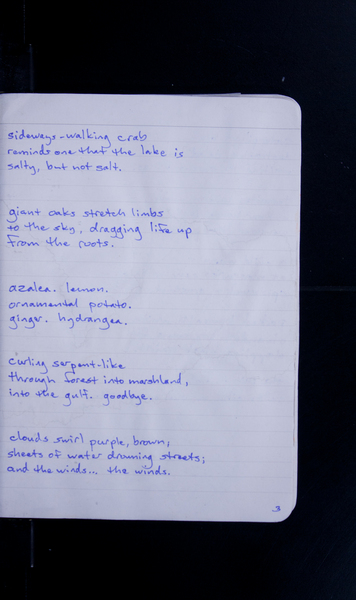 sideways-walking crab
reminds one that the lake is
salty, but not salt.
giant oaks stretch limbs
to the sky, dragging life up
from the roots.
azalea. lemon.
ornamental potato.
ginger. hydrangea.
curling serpent-like
through forest into marshland,
into the gulf. goodbye.
clouds swirl purple, brown,
sheets of water drowning streets;
and the winds... the winds.
3